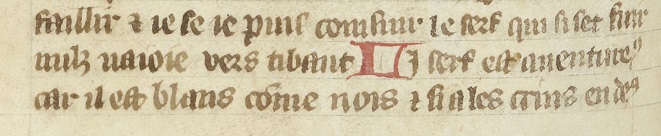 saillir ⁊ ie se ie puis consiuir le serf qui si set fuir
vers tibaut LI serf est auentureꝰ
car il est blans cōme nois ⁊ si a les crins en deꝰ